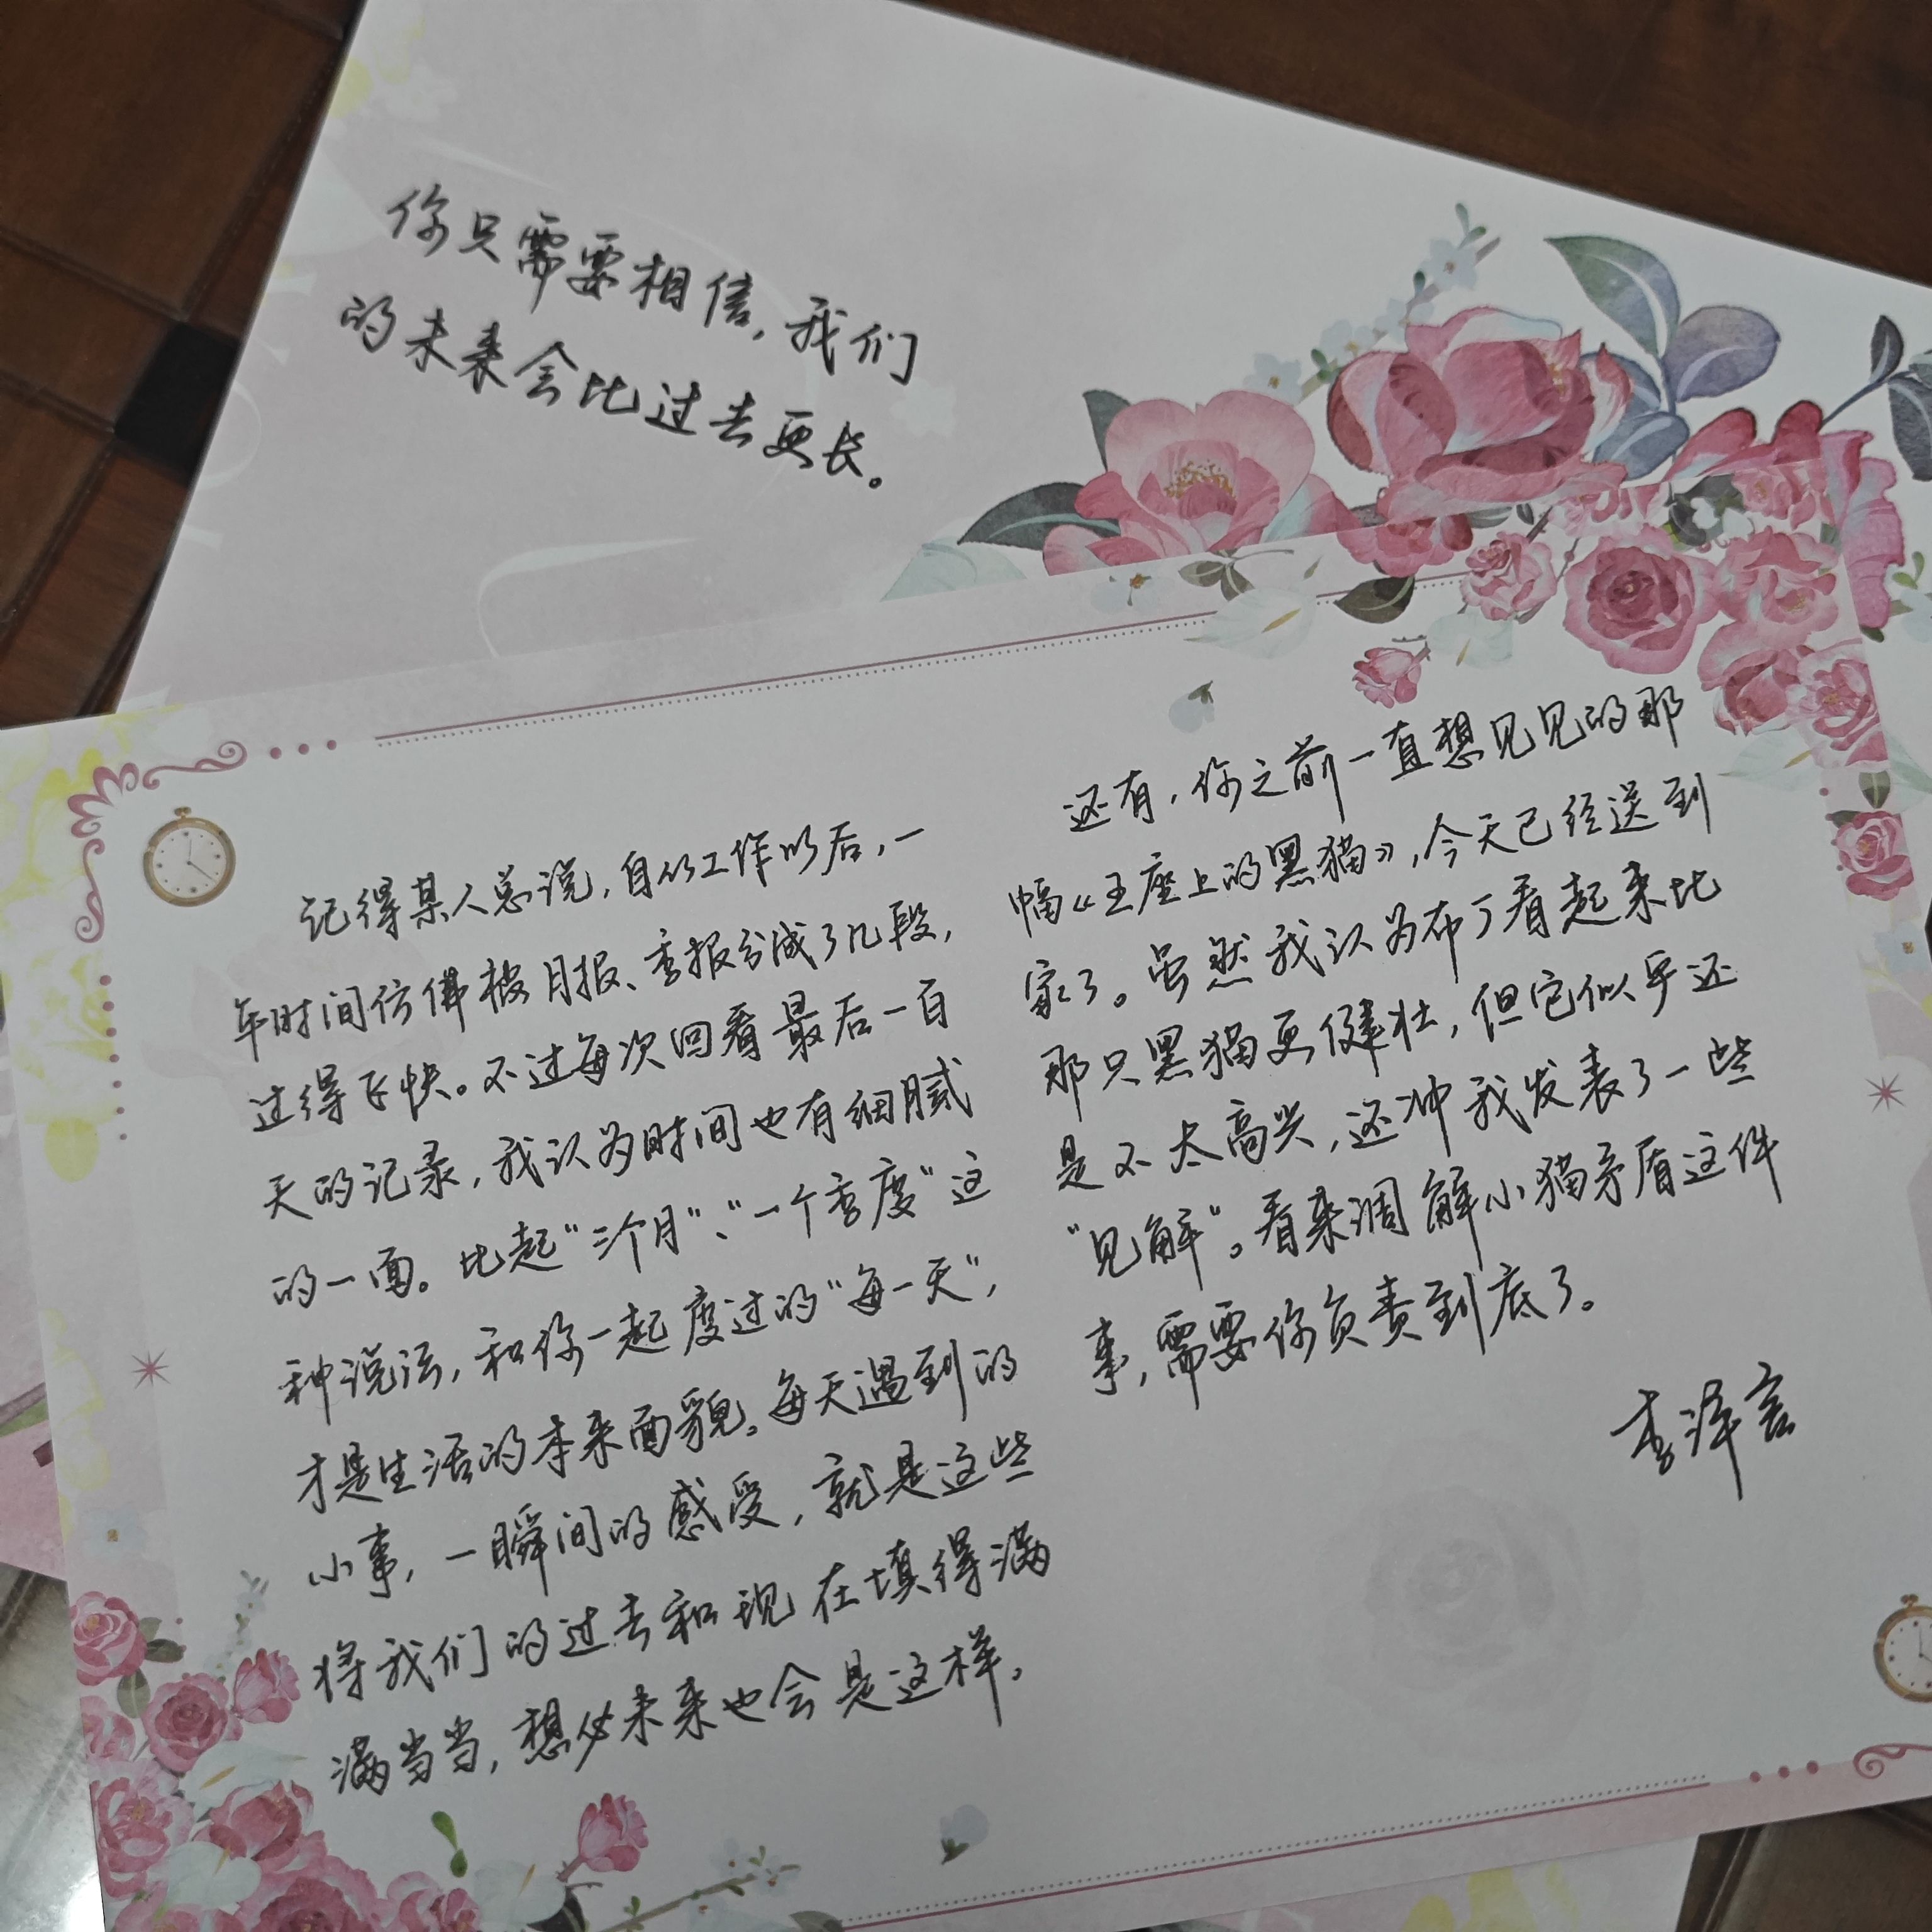 你只需要相信,我们
的未来会比过去更长。
记得某人总说,自从工作以后,一
年时间仿佛被月报、季报分成了几段,
过得飞快。不过每次回看最后一百
天的记录,我认为时间也有细腻
的一面。比起“三个月”、“一个季度”这
种说法,和你一起度过的“每一天”,
才是生活的本来面貌。每天遇到的
小事,一瞬间的感受,就是这些
将我们的过去和现在填得满
满当当,想必未来也会是这样。
还有,你之前一直想见见的那
幅《王座上的黑猫》,今天已经送到
家了。虽然我认为布丁看起来比
那只黑猫更健壮,但它似乎还
是不太高兴,还冲我发表了一些
“见解”。看来调解小猫矛盾这件
事,需要你负责到底了。
李泽言